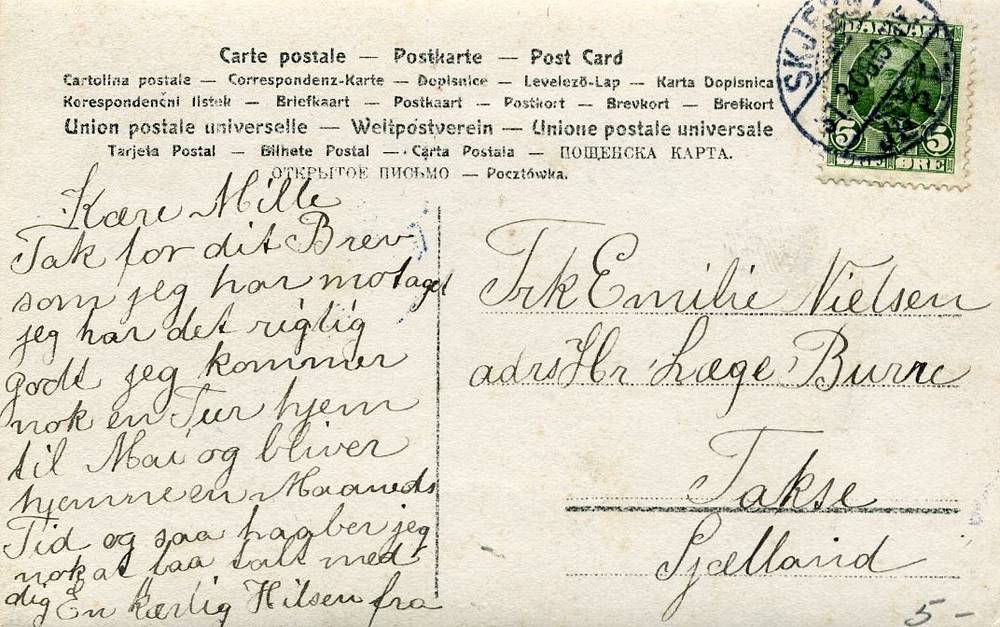 Carte postale — Postkarte — Post Card
Cartolina postale — Correspondenz-Karte — Dopisnice — Levelező-Lap — Karta Dopisnica
Korespondenční lístek — Briefkaart — Postkaart — Postkort — Brevkort — Brefkort
Union postale universelle — Weltpostverein — Unione postale universale
Tarjeta Postal — Bilhete Postal — Carta Postala — ПОЩЕНСКА КАРТА.
ОТКРЫТОЕ ПИСЬМО — Pocztówka.
Kære Mille
Tak for dit Brev
som jeg har motaget
jeg har det rigtig
godt jeg kommer
nok en Tur hjem
til Mai og bliver
hjemme en Maaneds
Tid og saa haaber jeg
nok at faa talt med
dig En kærlig Hilsen fra
DANMARK
5 5
ØRE
Frk Emilie Nielsen
adrs Hr Læge Burre
Takse
Sjælland
5-